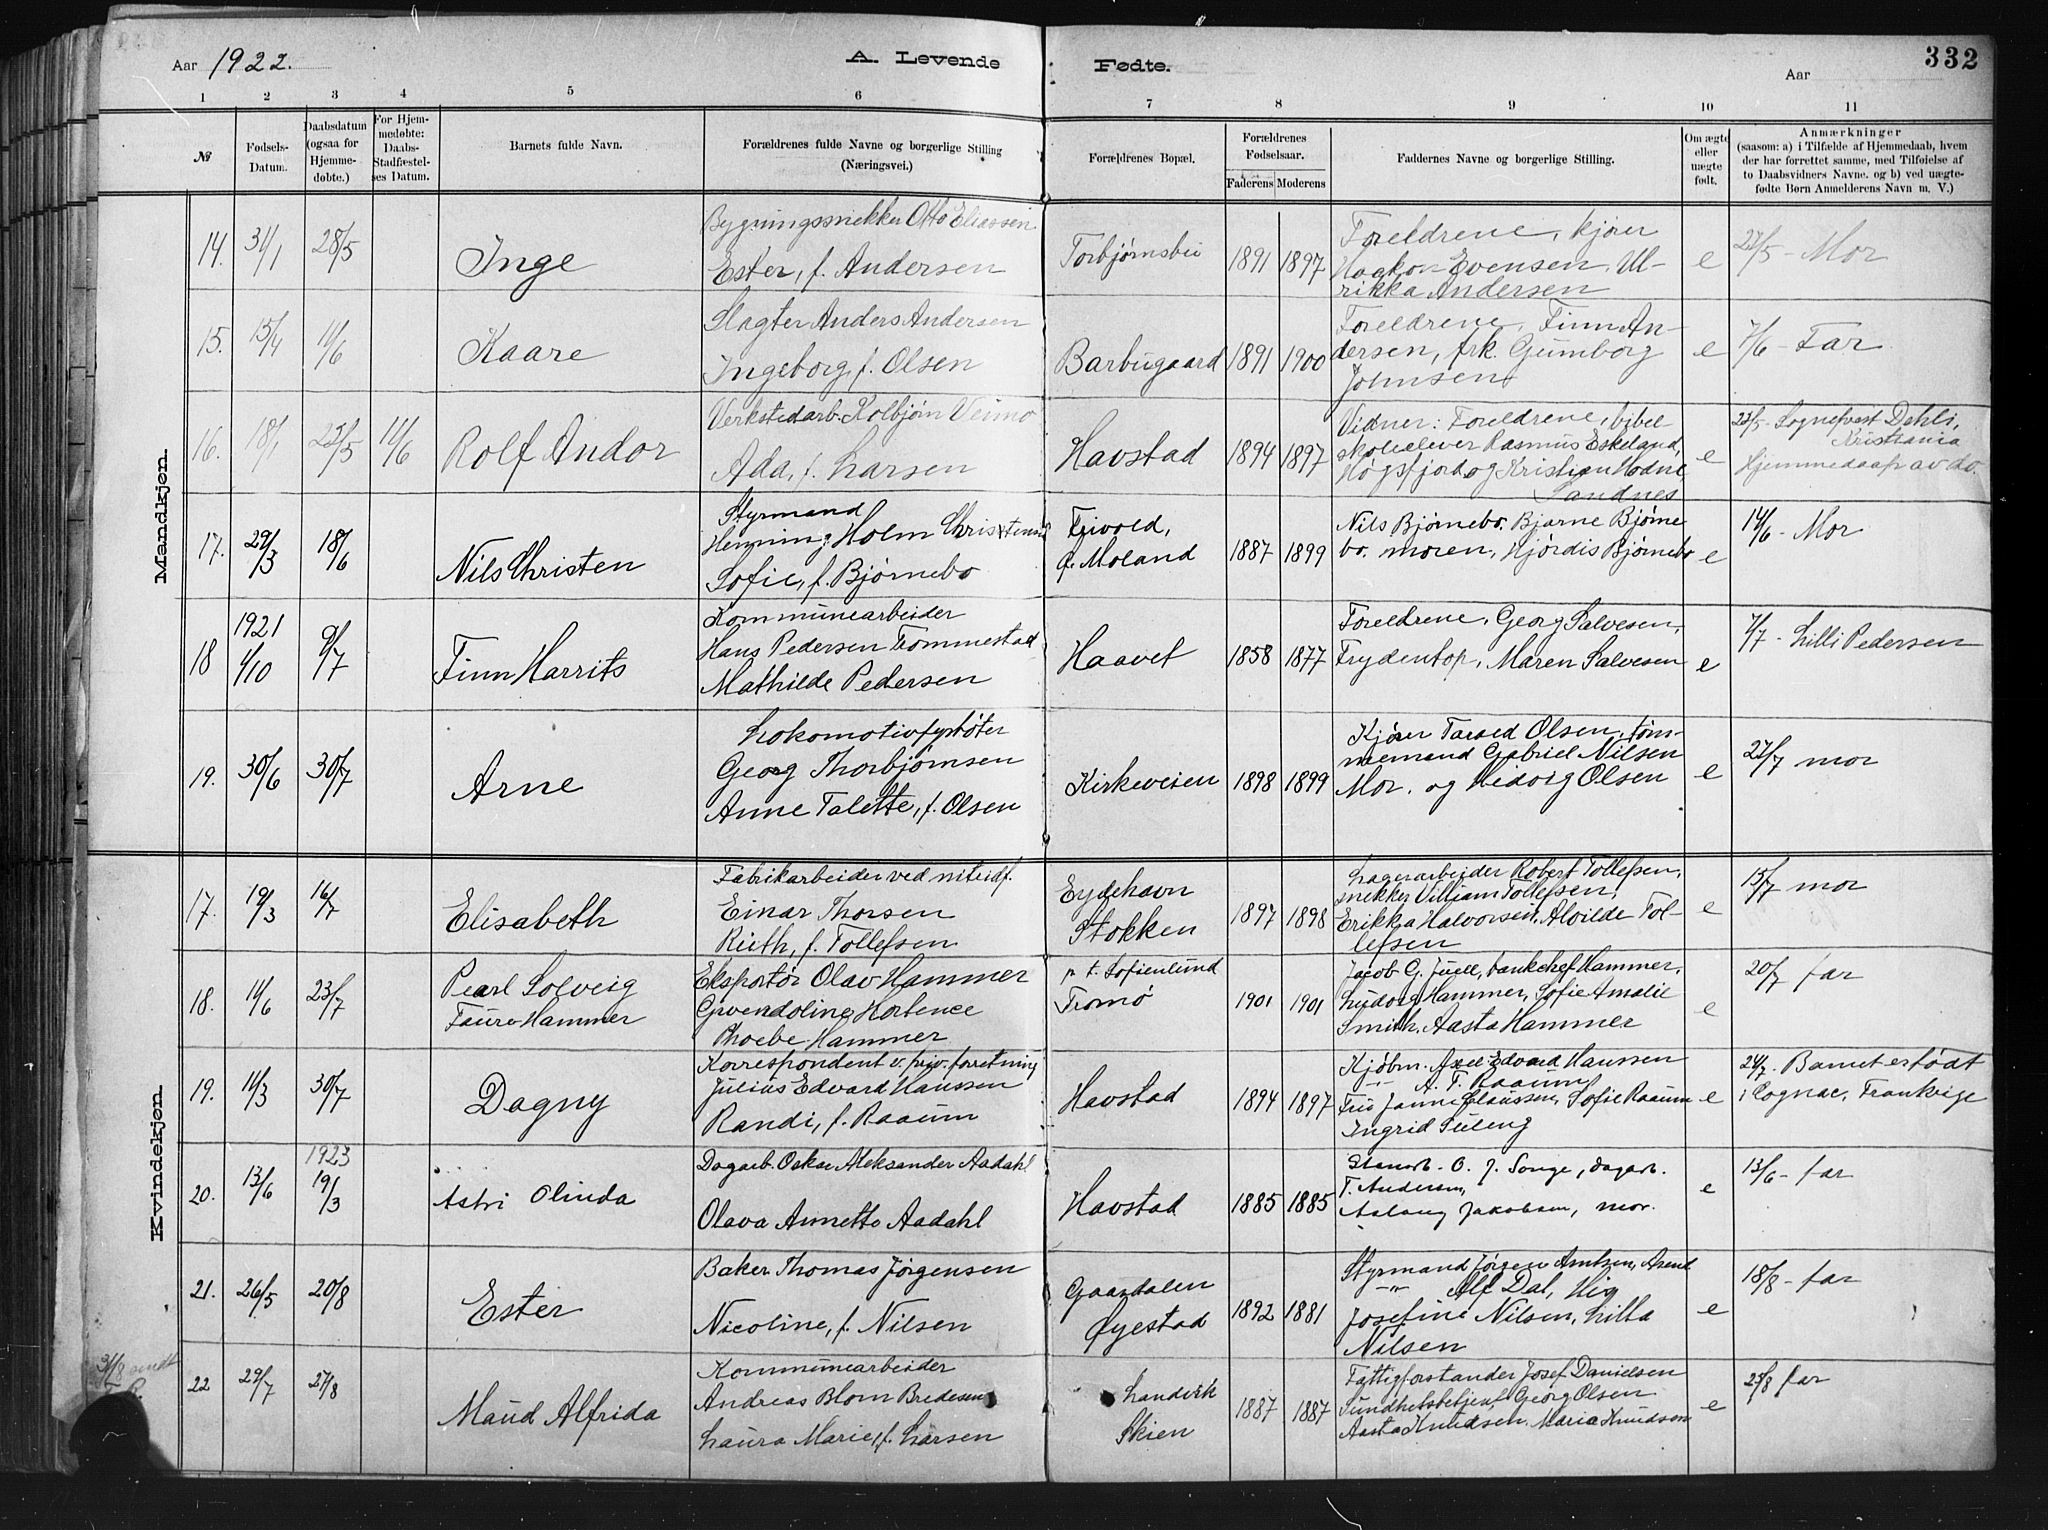 Aar 1922.
A. Levende
Fødte.
Aar
332
1 2 3 4 5 6 7 8 9 10 11
№
Fødsels-
Datum.
Daabsdatum
(ogsaa for
Hjemme-
døbte.)
For Hjem-
medøbte:
Daabs-
Stadfæstel-
ses Datum.
Barnets fulde Navn.
Forældrenes fulde Navne og borgerlige Stilling
(Næringsvei.)
Forældrenes Bopæl.
Forældrenes
Fødselsaar.
Faderens Moderens
Faddernes Navne og borgerlige Stilling.
Om ægte
eller
uægte
født.
Anmærkninger
(saasom: a) i Tilfælde af Hjemmedaab, hvem
der har forrettet samme, med Tilføielse af
to Daabsvidners Navne. og b) ved uægte-
fødte Børn Anmelderens Navn m. V.)
Mandkjøn.
14. 31/1 28/5
Inge
Bygningssnekker Otto Eliassen
Ester, f. Andersen
Torbjørnsbu
1891 1897
Foreldrene, kjører
Haakon Evensen, Ul-
rikka Andersen
e
27/5 - Mor
15. 15/4 11/6
Kaare
Slagter Anders Andersen
Ingeborg, f. Olsen
Barbugaard
1891 1900
Foreldrene, Finn An-
dersen, frk. Gunborg
Johnsen
e
7/6 - Far
16. 18/1 25/5 11/6
Rolf Andor
Verkstedarb. Kolbjørn Veimo
Ada, f. Larsen
Havstad
1894 1897
Vidner: Foreldrene, bibel-
skoleelever Rasmus Eskeland,
Høgsfjord og Kristian Hodne,
Sandnes
e
23/5 - Sognefvest Dehli,
Kristiania
Hjemmedaap av do.
17. 29/3 18/6
Nils Christen
Styrmand
Henning Holm Christensen
Sofie, f. Bjørnebo
Frivold,
ø. Moland
1887 1899
Nils Bjørnebo. Bjarne Bjørne
bo. moren, Hjørdis Bjørnebo
e
14/6 - Mor
18 1921
1/10 9/7
Finn Harrits
Kommunearbeider
Hans Pedersen Trommestad
Mathilde Pedersen
Haavet
1858 1877
Foreldrene, Georg Salvesen,
Frydentop, Maren Salvesen
e
7/7 - Lilli Pedersen
19. 30/6 30/7
Arne
Lokomotivfyrbøter
Georg Thorbjørnsen
Anne Talette, f. Olsen
Kirkeveien
1898 1899
Kjører Tarald Olsen, tøm-
mermand Gabriel Nilsen
Mor. og Hedvig Olsen
e
27/7 mor
Kvindekjøn.
17. 19/3 16/7
Elisabeth
Fabrikarbeider ved nitridf.
Einar Thorsen
Ruth, f. Tollefsen
Eydehavn
Stokken
1897 1898
Lagerarbeider Robert Tollefsen,
snekker Villiam Tollefsen,
Erikka Halvorsen, Alvilde Tol-
lefsen
e
15/7 mor
18. 11/6 23/7
Pearl Solveig
Faure Hammer
Eksportør Olav Hammer
Gwendoline Hortence
Phoebe Hammer
p. t. Sofienlund
Tromø
1901 1901
Jacob G. Juell, bankchef Hammer,
Ludvig Hammer, Sofie Amalie
Smith, Aasta Hammer
e
20/7 far
19. 11/3 30/7
Dagny
Korrespondent v. priv. forretning
Julius Edvard Hanssen
Randi, f. Raaum
Havstad
1894 1897
Kjøbm. Axel Edvard Hanssen
-"- A. T. Raaum
Fru Janna Claussen, Sofie Raaum
Ingrid Suleng
e
24/7. Barnet er født
i Cognac, Frankrige
20. 13/6 1923
19/3
Astri Olinda
Dagarb. Oskar Aleksander Aadahl
Olava Annette Aadahl
Havstad
1885 1885
Stenarb. O. J. Songe, dagarb.
T. Andersen,
Aslaug Jakobsen, mor.
e
13/6 - far
21. 26/5 20/8
Ester
Baker Thomas Jørgensen
Nicoline, f. Nilsen
Gaardalen
Øyestad
1892 1881
Styrmand Jørgen Arntsen, Arend
-"- Alf Dal, His
Josefine Nilsen, Lilla
Nilsen
e
18/8 - far
31/8 sendt
22 29/7 27/8
Maud Alfrida
Kommunearbeider
Andreas Blom Bredesen
Laura Marie, f. Larsen
Landvik
Skien
1887 1887
Fattigforstander Josef Danielsen
Sundhetsbetjent Georg Olsen
Aasta Knudsen, Maria Knudsen
e
25/8 far